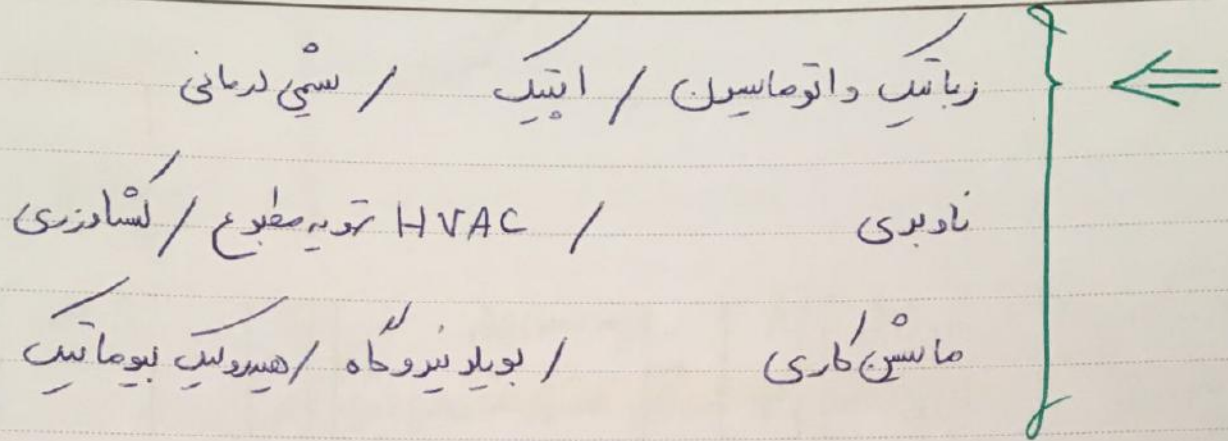 رباتیک و اتوماسیون / اپتیک / شیمی درمانی
ناوبری / HVAC تهویه مطبوع / کشاورزی
ماشین کاری / بویلر نیروگاه / هیدرولیک نیوماتیک